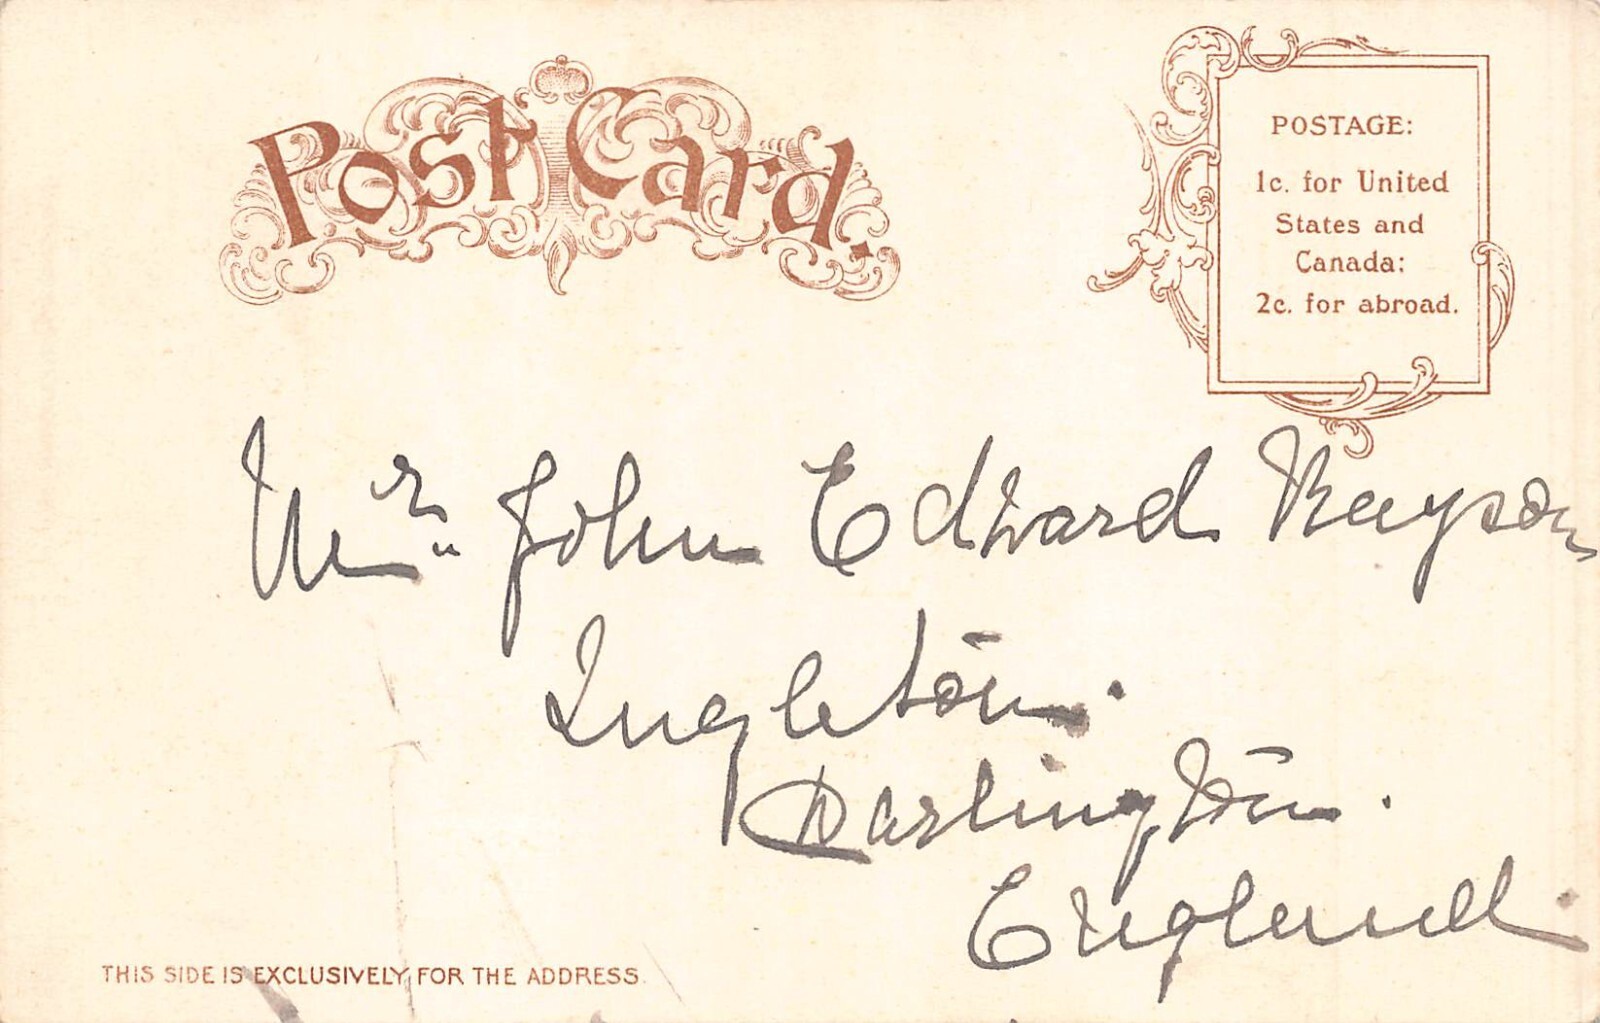 Post Card.
POSTAGE:
1c. for United
States and
Canada:
2c. for abroad.
Mr. John Edward
Ingleton.
Darlington.
England.
THIS SIDE IS EXCLUSIVELY FOR THE ADDRESS.